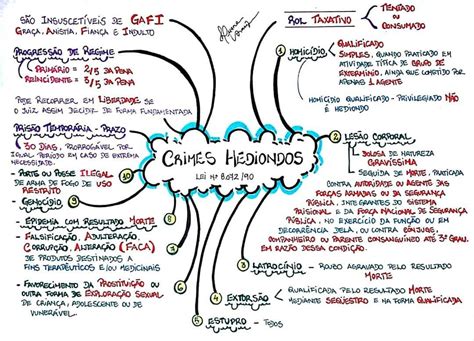 SÃO INSUSCETÍVEIS DE GAFI
GRAÇA, ANISTIA, FIANÇA E INDULTO
PROGRESSÃO DE REGIME
PRIMÁRIO = 2/5 DA PENA
REINCIDENTE = 3/5 DA PENA
PODE RECORRER EM LIBERDADE SE
O JUIZ ASSIM DECIDIR DE FORMA FUNDAMENTADA
PRISÃO TEMPORÁRIA - PRAZO
30 DIAS, PRORROGÁVEL POR
IGUAL PERÍODO EM CASO DE EXTREMA
NECESSIDADE.
10
- PORTE OU POSSE ILEGAL
DE ARMA DE FOGO DE USO
RESTRITO
9
- GENOCÍDIO
8
- EPIDEMIA COM RESULTADO MORTE
- FALSIFICAÇÃO, ADULTERAÇÃO,
CORRUPÇÃO, ALTERAÇÃO (FACA)
DE PRODUTOS DESTINADOS A
FINS TERAPÊUTICOS E/OU MEDICINAIS
- FAVORECIMENTO DA PROSTITUIÇÃO OU
OUTRA FORMA DE EXPLORAÇÃO SEXUAL
DE CRIANÇA, ADOLESCENTE OU DE
VUNERÁVEL.
CRIMES HEDIONDOS
LEI Nº 8.072/90
ROL TAXATIVO
TENTADO
OU
CONSUMADO
1 HOMICÍDIO
QUALIFICADO
SIMPLES, QUANDO PRATICADO EM
ATIVIDADE TÍPICA DE GRUPO DE
EXTERMÍNIO, AINDA QUE COMETIDO POR
APENAS 1 AGENTE
HOMICÍDIO QUALIFICADO - PRIVILEGIADO NÃO
É HEDIONDO
2 LESÃO CORPORAL
DOLOSA DE NATUREZA
GRAVÍSSIMA
SEGUIDA DE MORTE, PRATICADA
CONTRA AUTORIDADE OU AGENTE DAS
FORÇAS ARMADAS OU DA SEGURANÇA
PÚBLICA, INTEGRANTES DO SISTEMA
PRISIONAL E DA FORÇA NACIONAL DE SEGURANÇA
PÚBLICA, NO EXERCÍCIO DA FUNÇÃO OU EM
DECORRÊNCIA DELA, OU CONTRA CÔNJUGE,
COMPANHEIRO OU PARENTE CONSANGUÍNEO ATÉ 3º GRAU,
EM RAZÃO DESSA CONDIÇÃO.
3 LATROCÍNIO - ROUBO AGRAVADO PELO RESULTADO
MORTE
4 EXTORSÃO
QUALIFICADA PELO RESULTADO MORTE
MEDIANTE SEQUESTRO E NA FORMA QUALIFICADA
5 ESTUPRO - TODOS